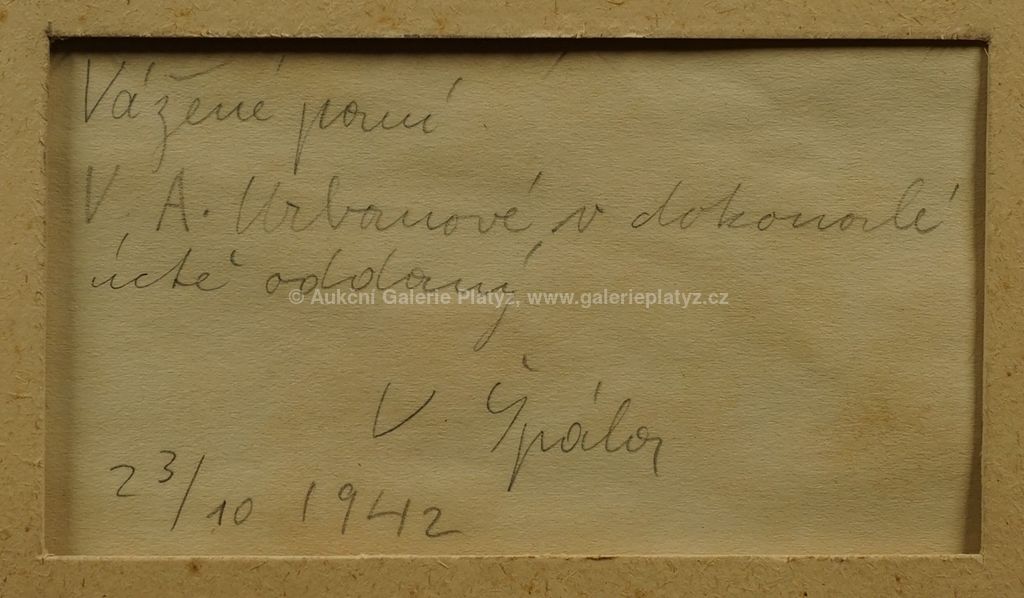 Vážené paní
V. A. Urbanové v dokonalé
úctě oddaný
© Aukční Galerie Platýz, www.galerieplatyz.cz
V Špála
23/10 1942